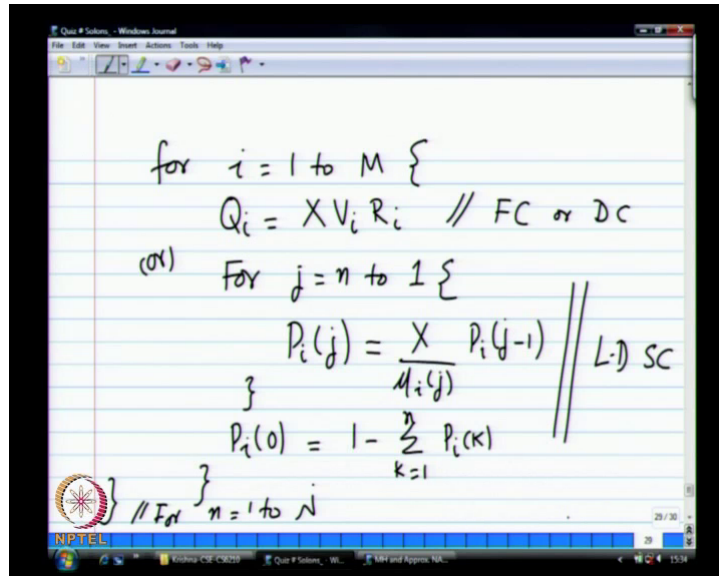 Quiz # Solons_ - Windows Journal
File Edit View Insert Actions Tools Help
for i = 1 to M {
Qi = X Vi Ri // FC or DC
(or) For j = n to 1 {
Pi(j) = X / μi(j) Pi(j-1) // L.D SC
}
Pi(0) = 1 - Σ k=1 n Pi(k)
}
} // For n = 1 to N
NPTEL
29 / 30
29
Krishna-CSE-CS6210 Quiz # Solons_ - Wi... MH and Approx. NA... 15:34